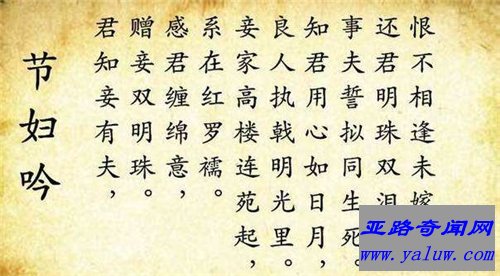 节妇吟
君知妾有夫，
赠妾双明珠。
感君缠绵意，
系在红罗襦。
妾家高楼连苑起，
良人执戟明光里。
知君用心如日月，
事夫誓拟同生死。
还君明珠双泪
恨不相逢未嫁
亚路奇闻网
www.yaluw.com